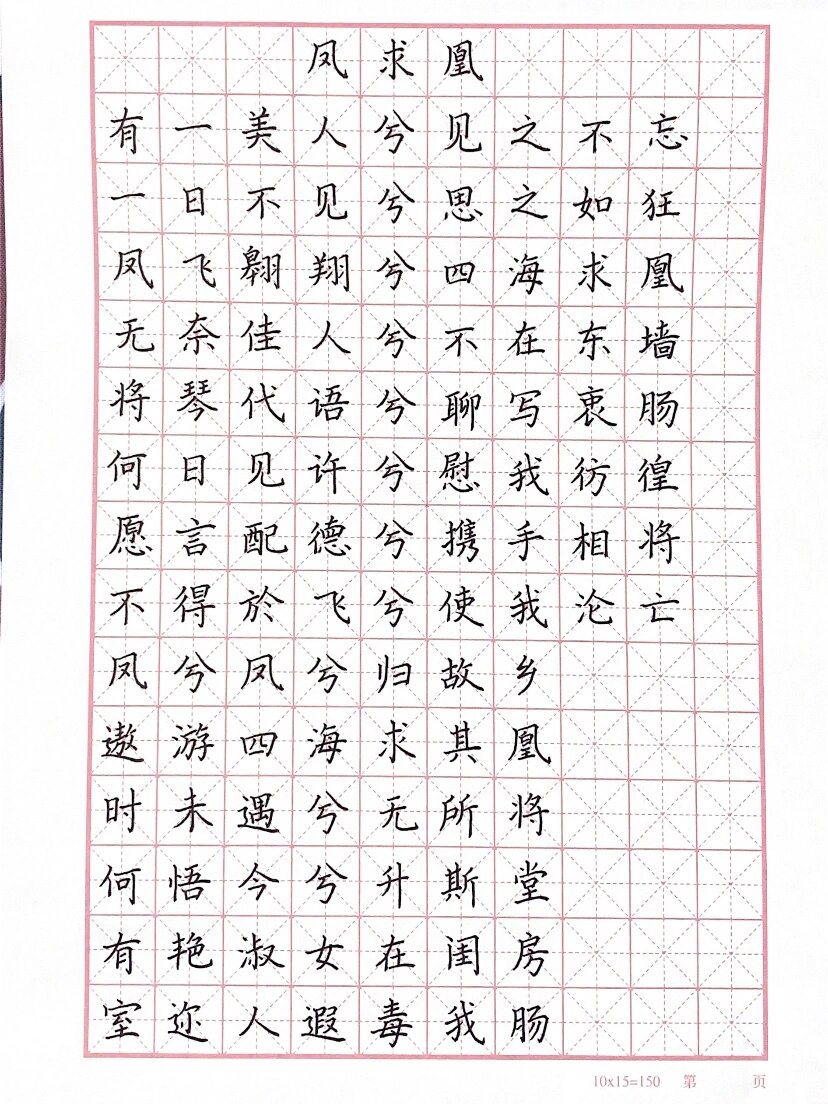 凤求凰
有一美人兮见之不忘
一日不见兮思之如狂
凤飞翱翔兮四海求凰
无奈佳人兮不在东墙
将琴代语兮聊写衷肠
何日见许兮慰我彷徨
愿言配德兮携手相将
不得於飞兮使我沦亡
凤兮凤兮归故乡
遨游四海求其凰
时未遇兮无所将
何悟今兮升斯堂
有艳淑女在闺房
室迩人遐毒我肠
10x15=150 第 页